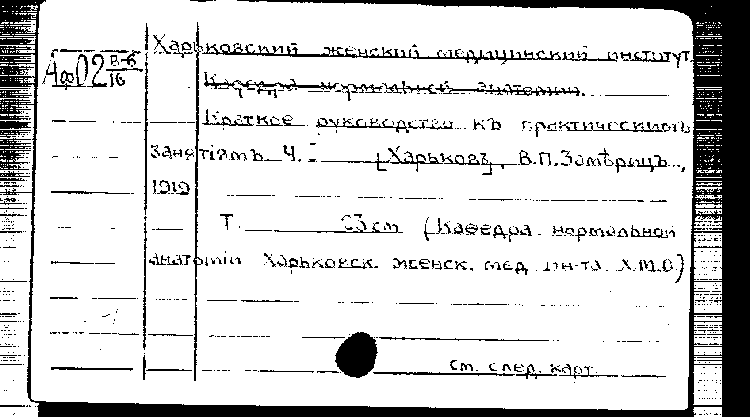 Харьковский женский медицинский институт.
Аф02 В-6/16
Кафедра нормальной анатомии.
Краткое руководство къ практическимъ
занятіямъ Ч. I [Харьковъ], В.П.
1919
Т. 23 см (Кафедра нормальной
анатоміи Харьковск. женск. мед. ин-та Х.М.О.)
см. след. карт.